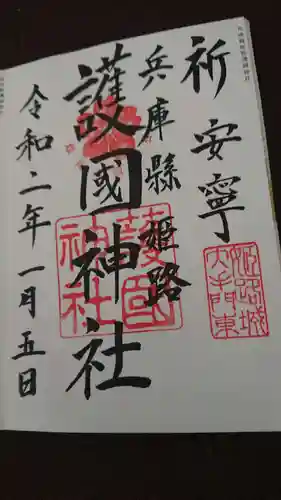 祈安寧
兵庫縣姫路
護國神社
令和二年一月五日
護國
神社
姫路城
大手門東